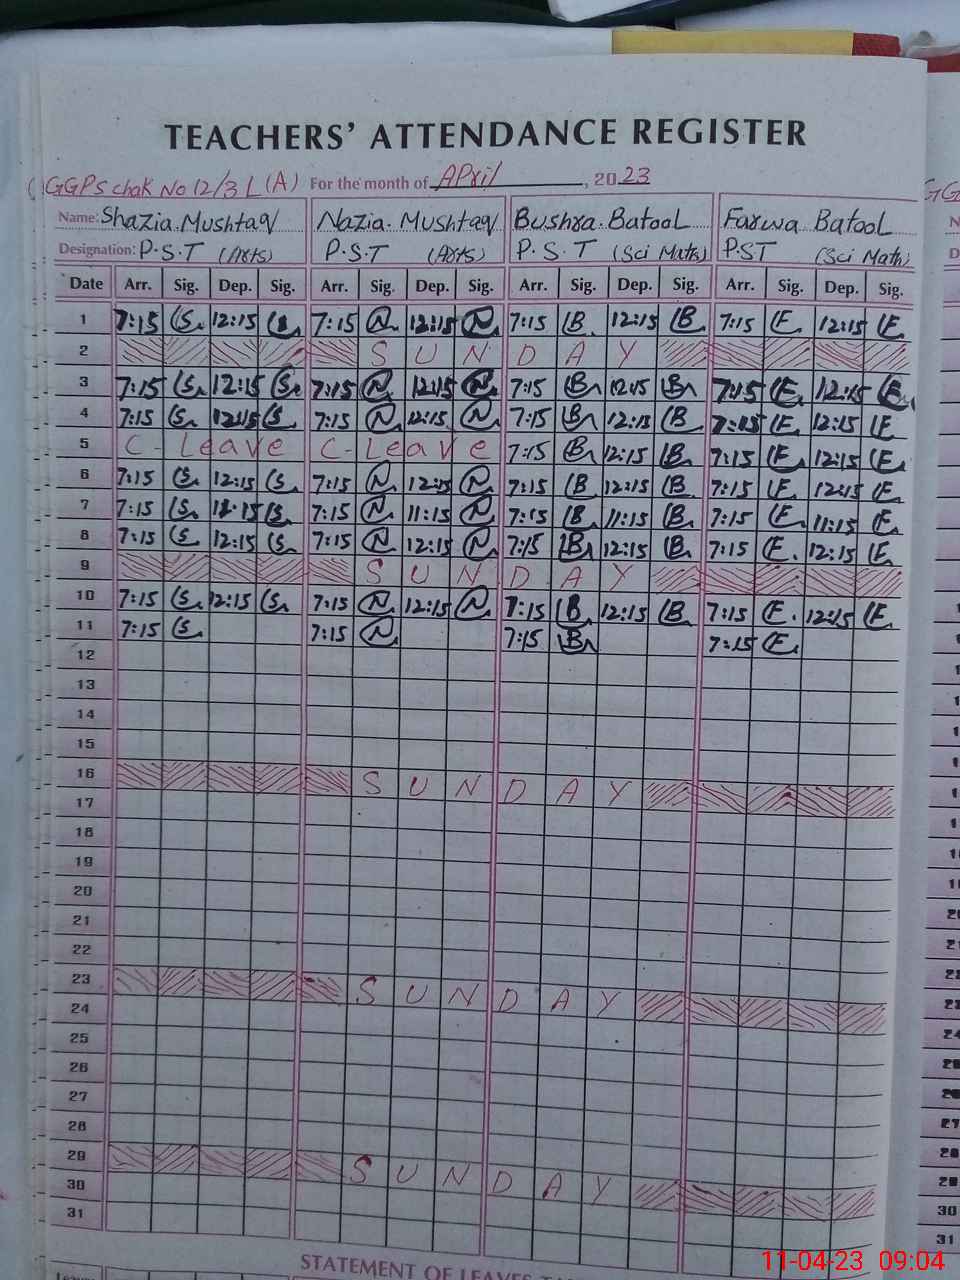 TEACHERS' ATTENDANCE REGISTER
GGPS chak No 12/3 L (A) For the month of April, 2023
Name: Shazia Mushtaq Nazia. Mushtaq Bushra. Batool Farwa Batool
Designation: P.S.T (Arts) P.S.T (Arts) P.S.T (Sci Math) P.ST (Sci Math)
Date Arr. Sig. Dep. Sig. Arr. Sig. Dep. Sig. Arr. Sig. Dep. Sig. Arr. Sig. Dep. Sig.
1 7:15 12:15 7:15 12:15 7:15 12:15 7:15 12:15
2 SUNDAY
3 7:15 12:15 7:15 12:15 7:15 12:15 7:15 12:15
4 7:15 12:15 7:15 12:15 7:15 12:15 7:15 12:15
5 C-Leave C-Leave 7:15 12:15 7:15 12:15
6 7:15 12:15 7:15 12:15 7:15 12:15 7:15 12:15
7 7:15 7:15 11:15 7:15 11:15 7:15 11:15
8 7:15 12:15 7:15 12:15 7:15 12:15 7:15 12:15
9 SUNDAY
10 7:15 12:15 7:15 12:15 7:15 12:15 7:15 12:15
11 7:15 7:15 7:15 7:15
12
13
14
15
16 SUNDAY
17
18
19
20
21
22
23 SUNDAY
24
25
26
27
28
29
30 SUNDAY
31
STATEMENT OF LEAVES
11-04-23 09:04